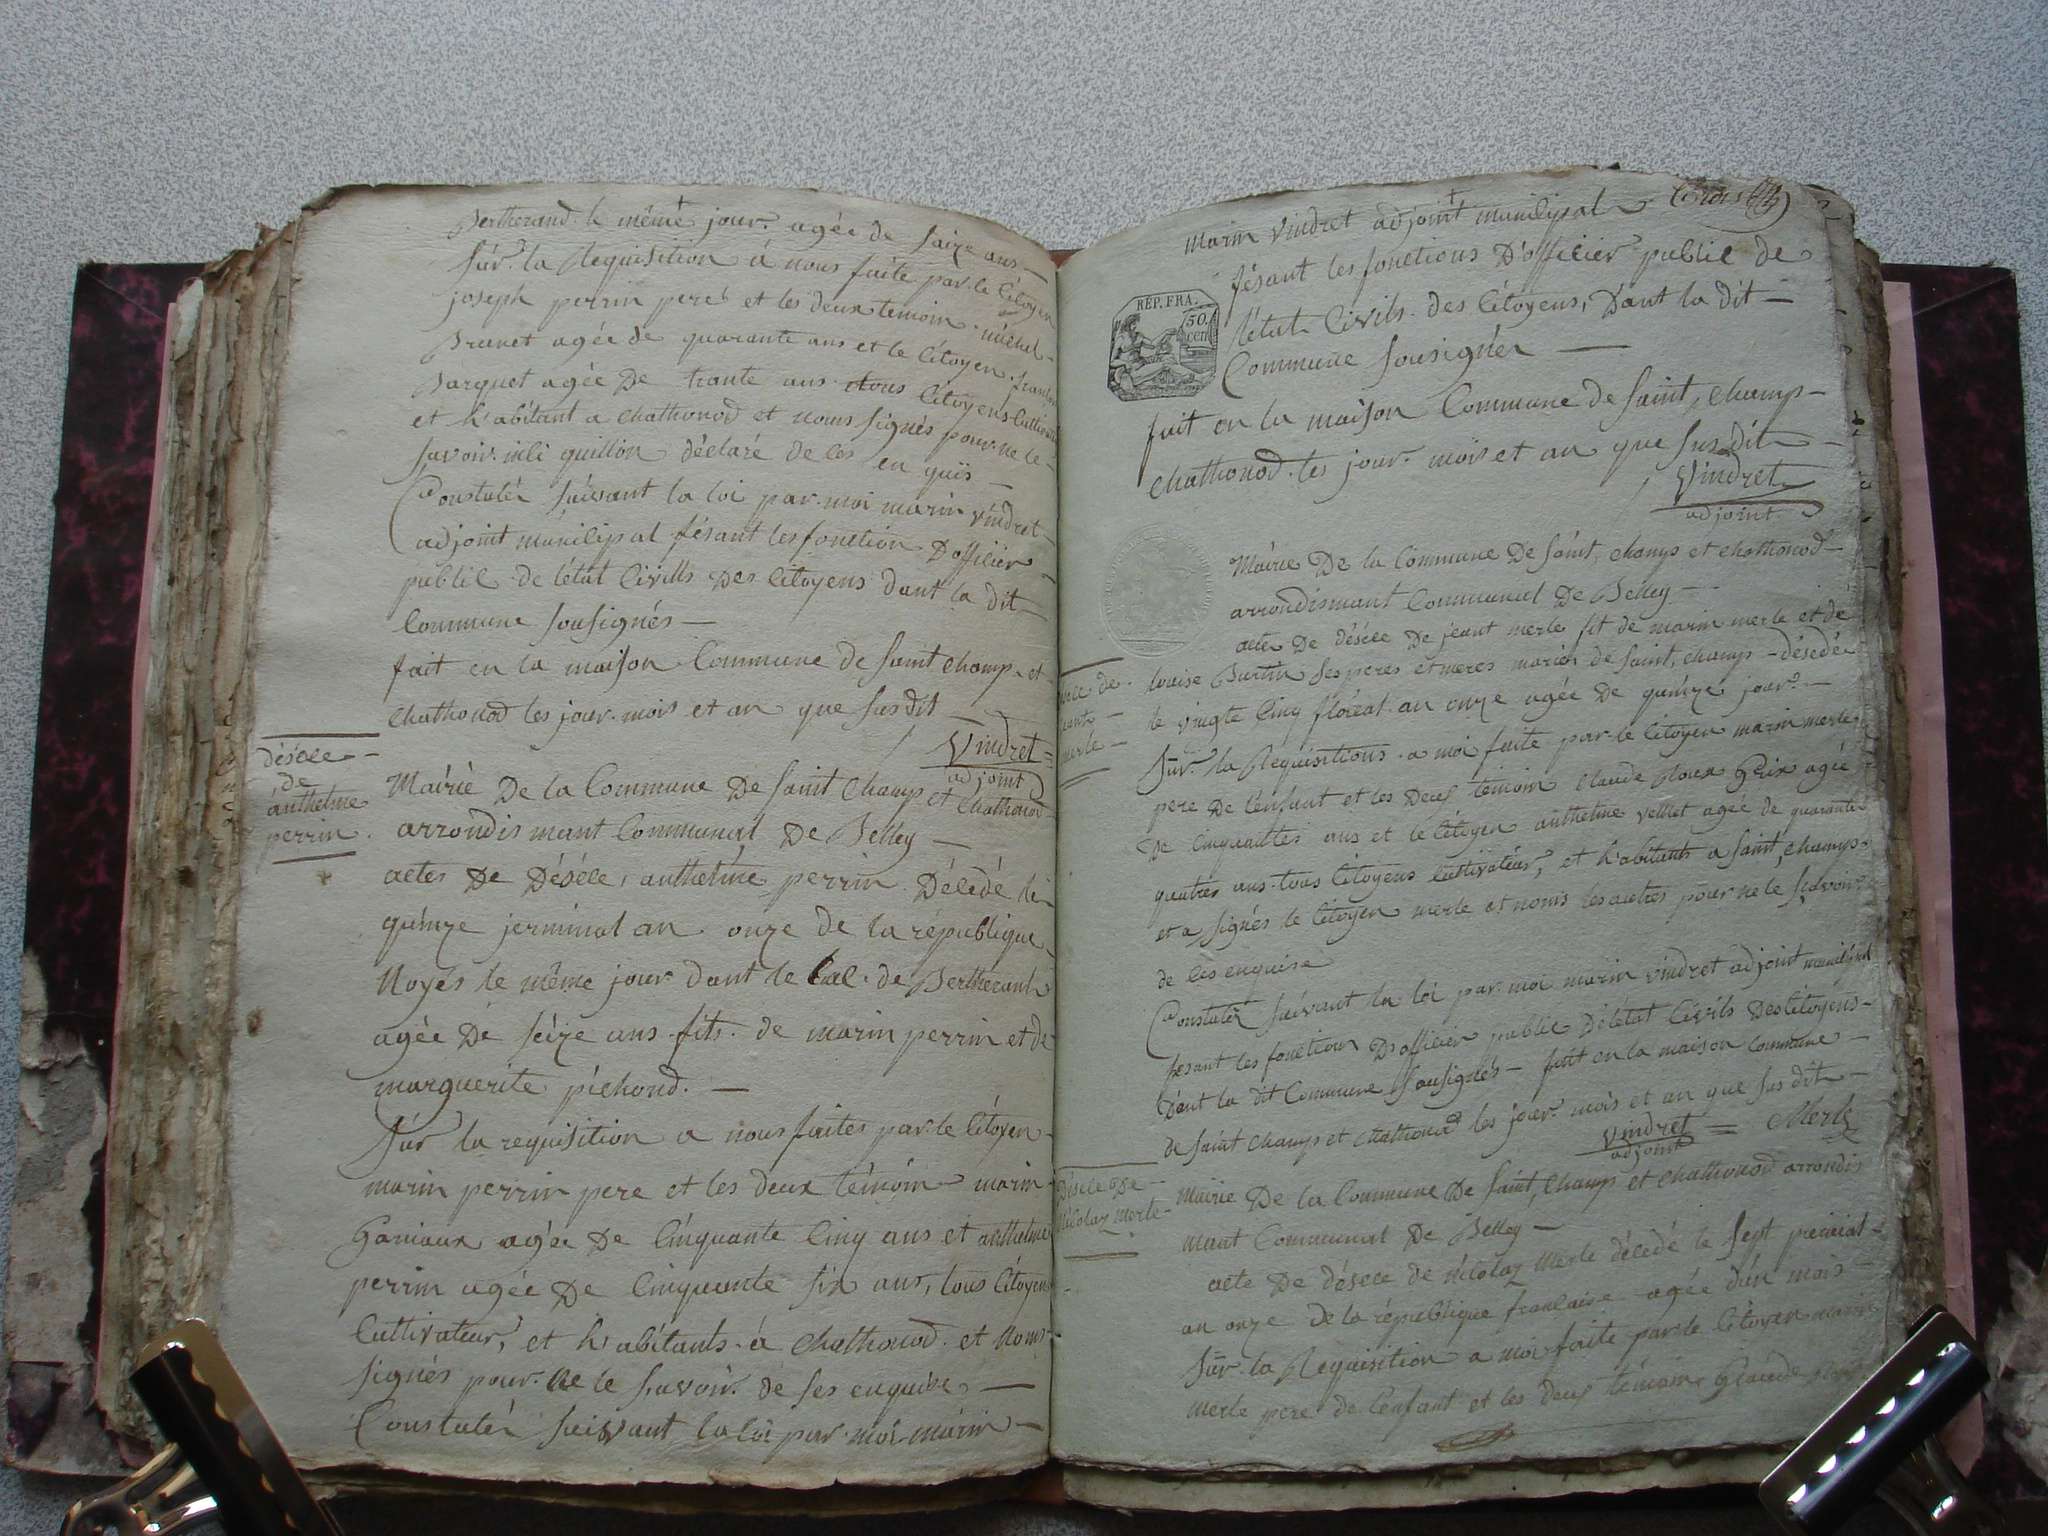 Bertherand le même jour agée de saize ans
sur la Requisition à nous faite par le Citoyen
joseph perrin pere et les deux temoin michel
Brunet agée de quarante ans et le Citoyen
Barquet agée De trante ans tous Citoyens
et h'abitant a chathonod et nons signés pour ne le
savoir déclaré de ces en quis
Constatér suivant la loi par moi marin vindret
adjoint municipal fésant les fonction D'officier
public de létat Civills Des Citoyens dant la dit
Commune sousignés
fait en la maison Commune de saint champ et
chathonod les jour mois et an que susdit
Vindret
adjoint
déséce
de
anthelme
perrin
Mairie De la Commune De saint champ et Chathonod
arrondismant Communal De Belley
actes De Déséce, anthelme perrin Décedé le
quinze jerminal an onze de la république
Noyés le même jour dant le Lac de Bertherand
agée De séize ans fits de marin perrin et de
marguerite pichond.
Sur la requisition a nous faites par le Citoyen
marin perrin pere et les deux témoin marin
Ganiaux agée De Cinquante Cinq ans et anthelme
perrin agée De Cinquante six ans, tous Citoyens
Cultivateur, et h'abitants à Chathonod et Nons
signés pour Ne le savoir de ses enquise
Constatér suivant la loi par moi marin
marin vindret adjoint municipal
fésant les fonctions D'officier public de
l'état Civils des Citoyens, Dant la dit
Commune sousignér
RÉP. FRA.
50.
cen
fait en la maison Commune de saint, champ
chathonod les jour mois et an que susdit
Vindret
adjoint
Mairie De la Commune De saint, champ et chathonod
arrondismant Communal De Belley
acte De désèce De jeant merle fit de marin merle et de
louise Burtin ses peres et meres mariér de saint, champ désedée
le vingte Cinq floréal an onze agée De quinze jour
Sur la Requisitions a moi faite par le Citoyen marin merle
pere De lenfant et les Deux temoin Claude Roux Grix agée
De Cinquantes ans et le Citoyen anthelme vellet agée de quarante
quatres ans tous Citoyens Cultivateur, et h'abitants a saint, champ
et a signés le Citoyen merle et nonis les autres pour ne le savoir
de ces enquise
Constatér suivant la loi par moi marin vindret adjoint municipal
fesant les fonction D'officier public De létat Civils Des Citoyens
Dant la dit Commune sousignés fait en la maison commune
de saint champ et chathonod les jour mois et an que susdit
Vindret
adjoint
Merle
de
merle
Déséce De
Nicolas Merle
Mairie De la Commune De saint, champ et chathonod arrondis
mant Communal De Belley
acte De désece de Nicolas Merle décedé le sept preirial
an onze De la république francaise agée d'un mois
Sur la Requisition a moi faite par le Citoyen marin
merle pere de l'enfant et les deux témoin Glaude